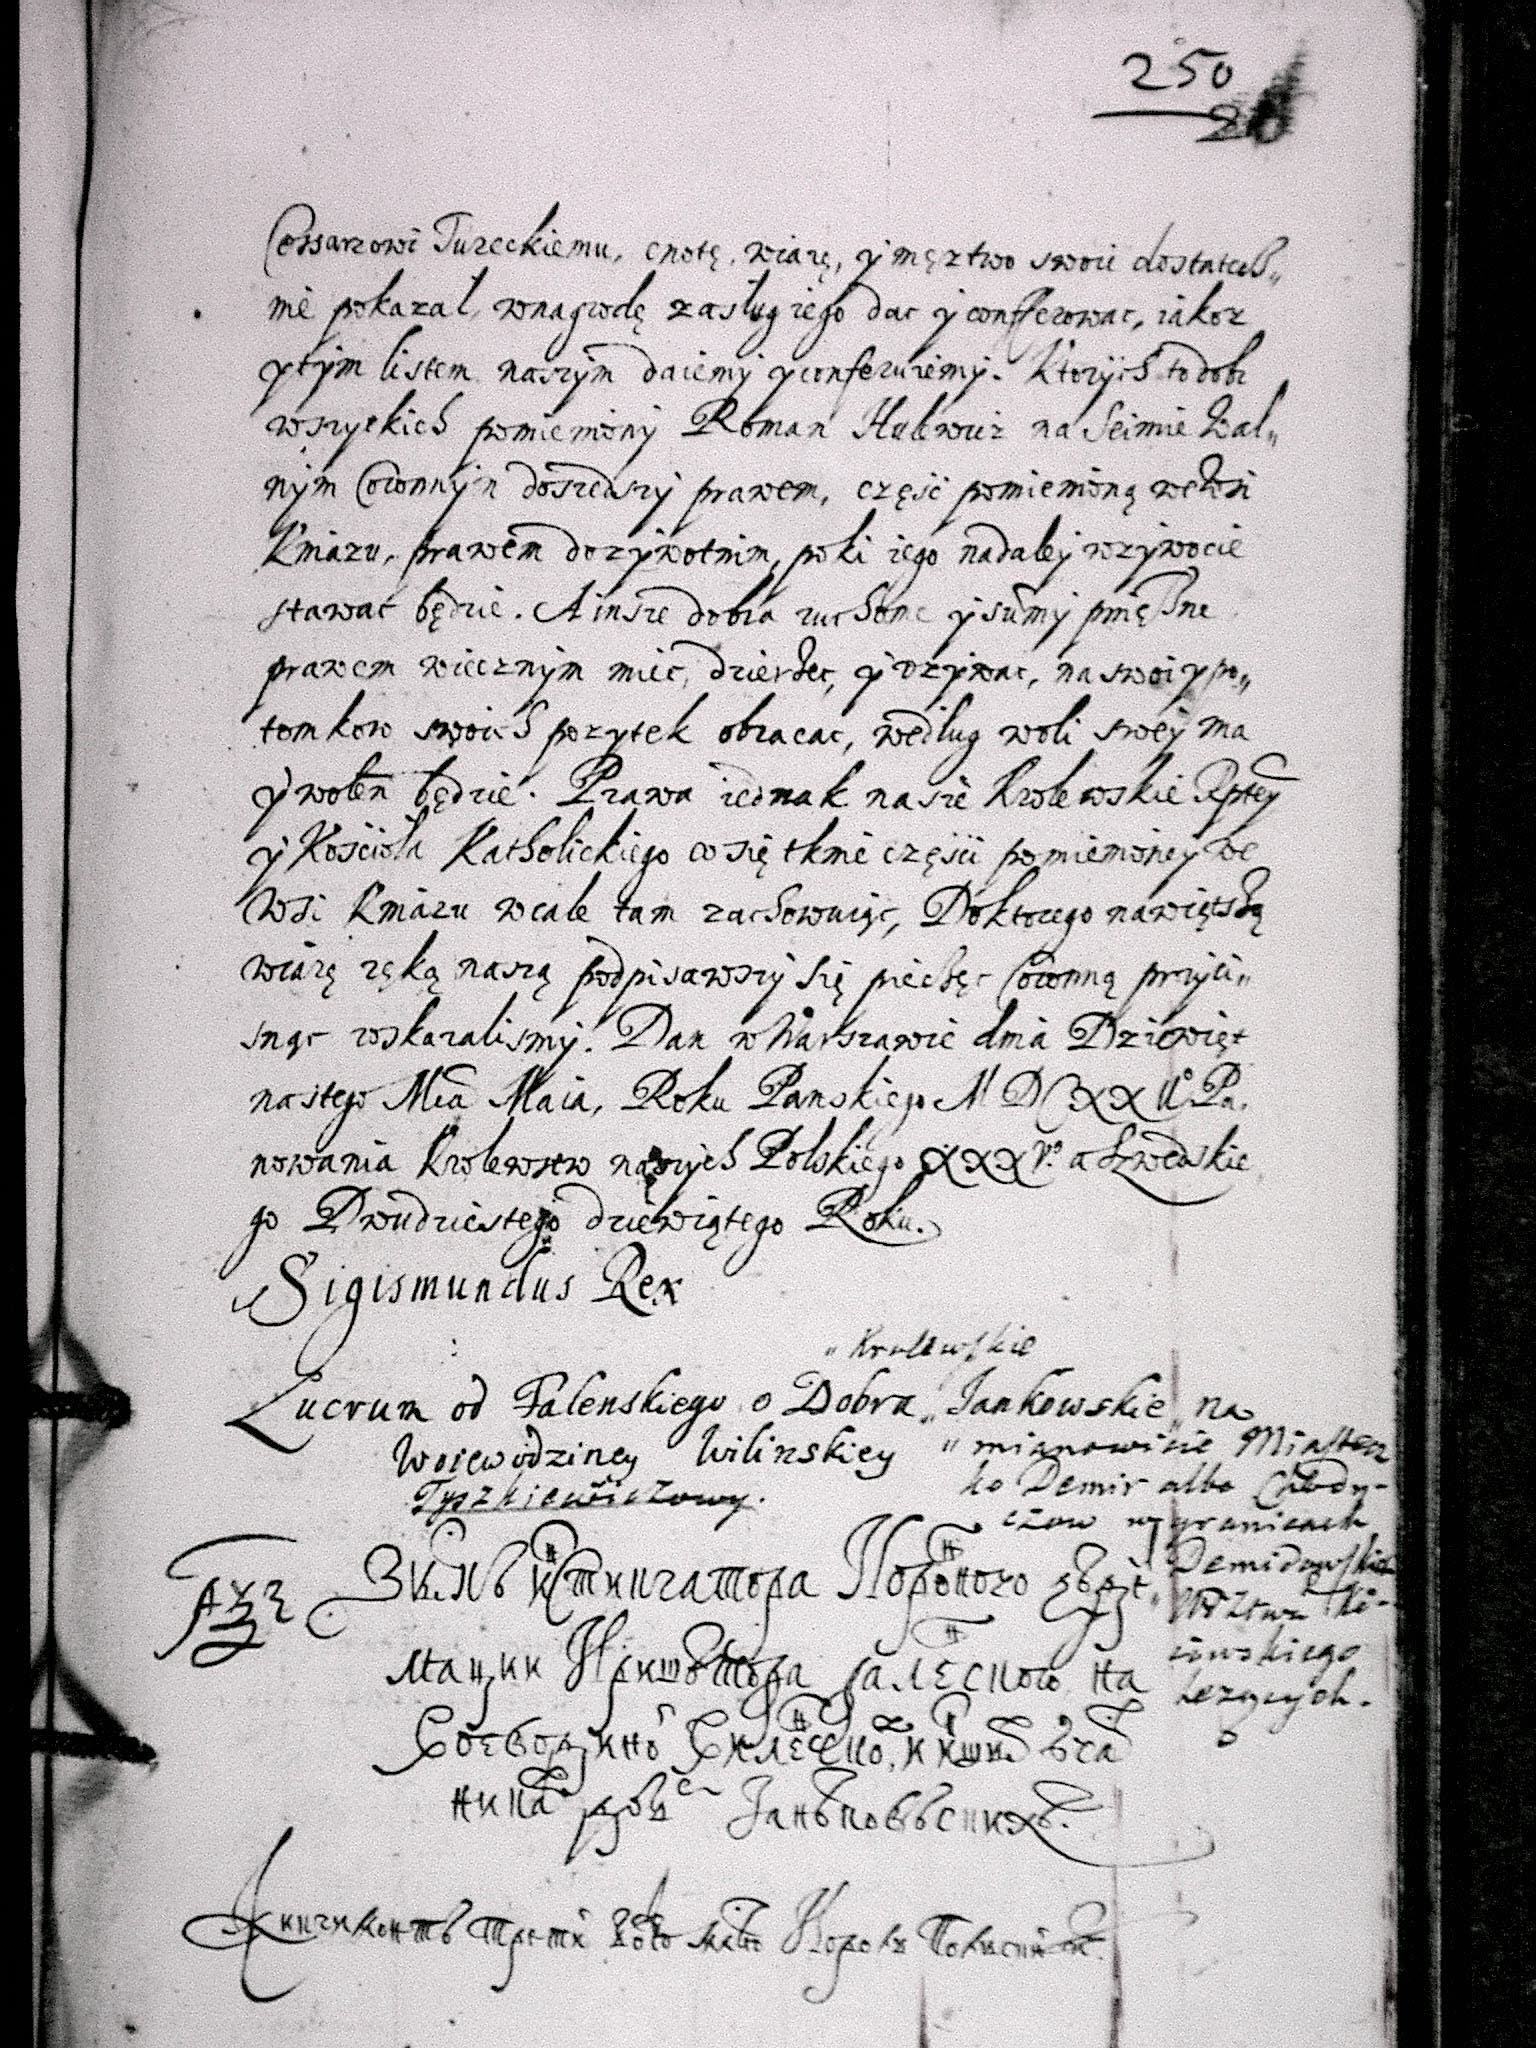 250
20
Cessarzowi Tureckiemu, cnotę, wiarę, y męztwo swoie dostatecz„
nie pokazał, wnagrodę zasług iego dac y conferowac, iakoz
y tym listem naszym daiemy y conferuiemy. Ktorych to dobr
wszytkich pomieniony Roman Hulewicz na Seimie Wal„
nym Coronnym doszedszy prawem, część pomienioną we Wsi
Kniazu, prawem dozywotnim, poki iego nadaley wzywocie
stawac będzie. A insze dobra ruchome y summy pnięzne
prawem wiecznym miec, dzierzec, y vzywac, na swoi y po„
tomkow swoich pozytek obracac, według woli swey ma
y wolen będzie. Prawa iednak nasze Krolewskie Rptey
y Kościoła Katholickiego co się tknie części pomienioney we
Wsi Kniazu wcale tam zachowuiąc, Doktorego nawiętszą
wiarę ręką naszą podpisawszy się pieczęc Coronną przyci„
snąc roskazalismy. Dan w Warszawie dnia Dziewięt
nastego Mca Maia, Roku Panskiego MDCXXII. Pa.
nowania Krolewstw naszych Polskiego XXXV. a Szwedskie
go Dwudziestego dziewiątego Roku.
Sigismundus Rex
„Krolewskie
Lucrum od Falenskiego o Dobra „Iankowskie„ na
Woiewodziney Wilinskiey „mianowicie Miastecz
Tyszkiewiczowy. ko Demir albo Chody-
czow w granicach
Зискъ инстикгатора Коронного Demidowskich
Wdztwa Ki-
Криштофа Фаленского на iowskiego
lezących.
Воеводиной Виленской
Яньковъскихъ.